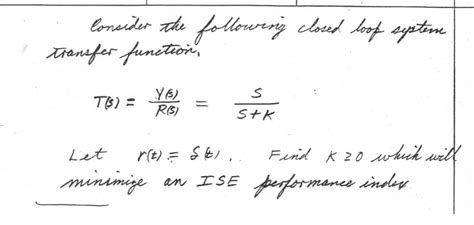 Consider the following closed loop system
transfer function,
T(s) = Y(s)/R(s) = S/(S+K)
Let r(t) = δ(t). Find K ≥ 0 which will
minimize an ISE performance index